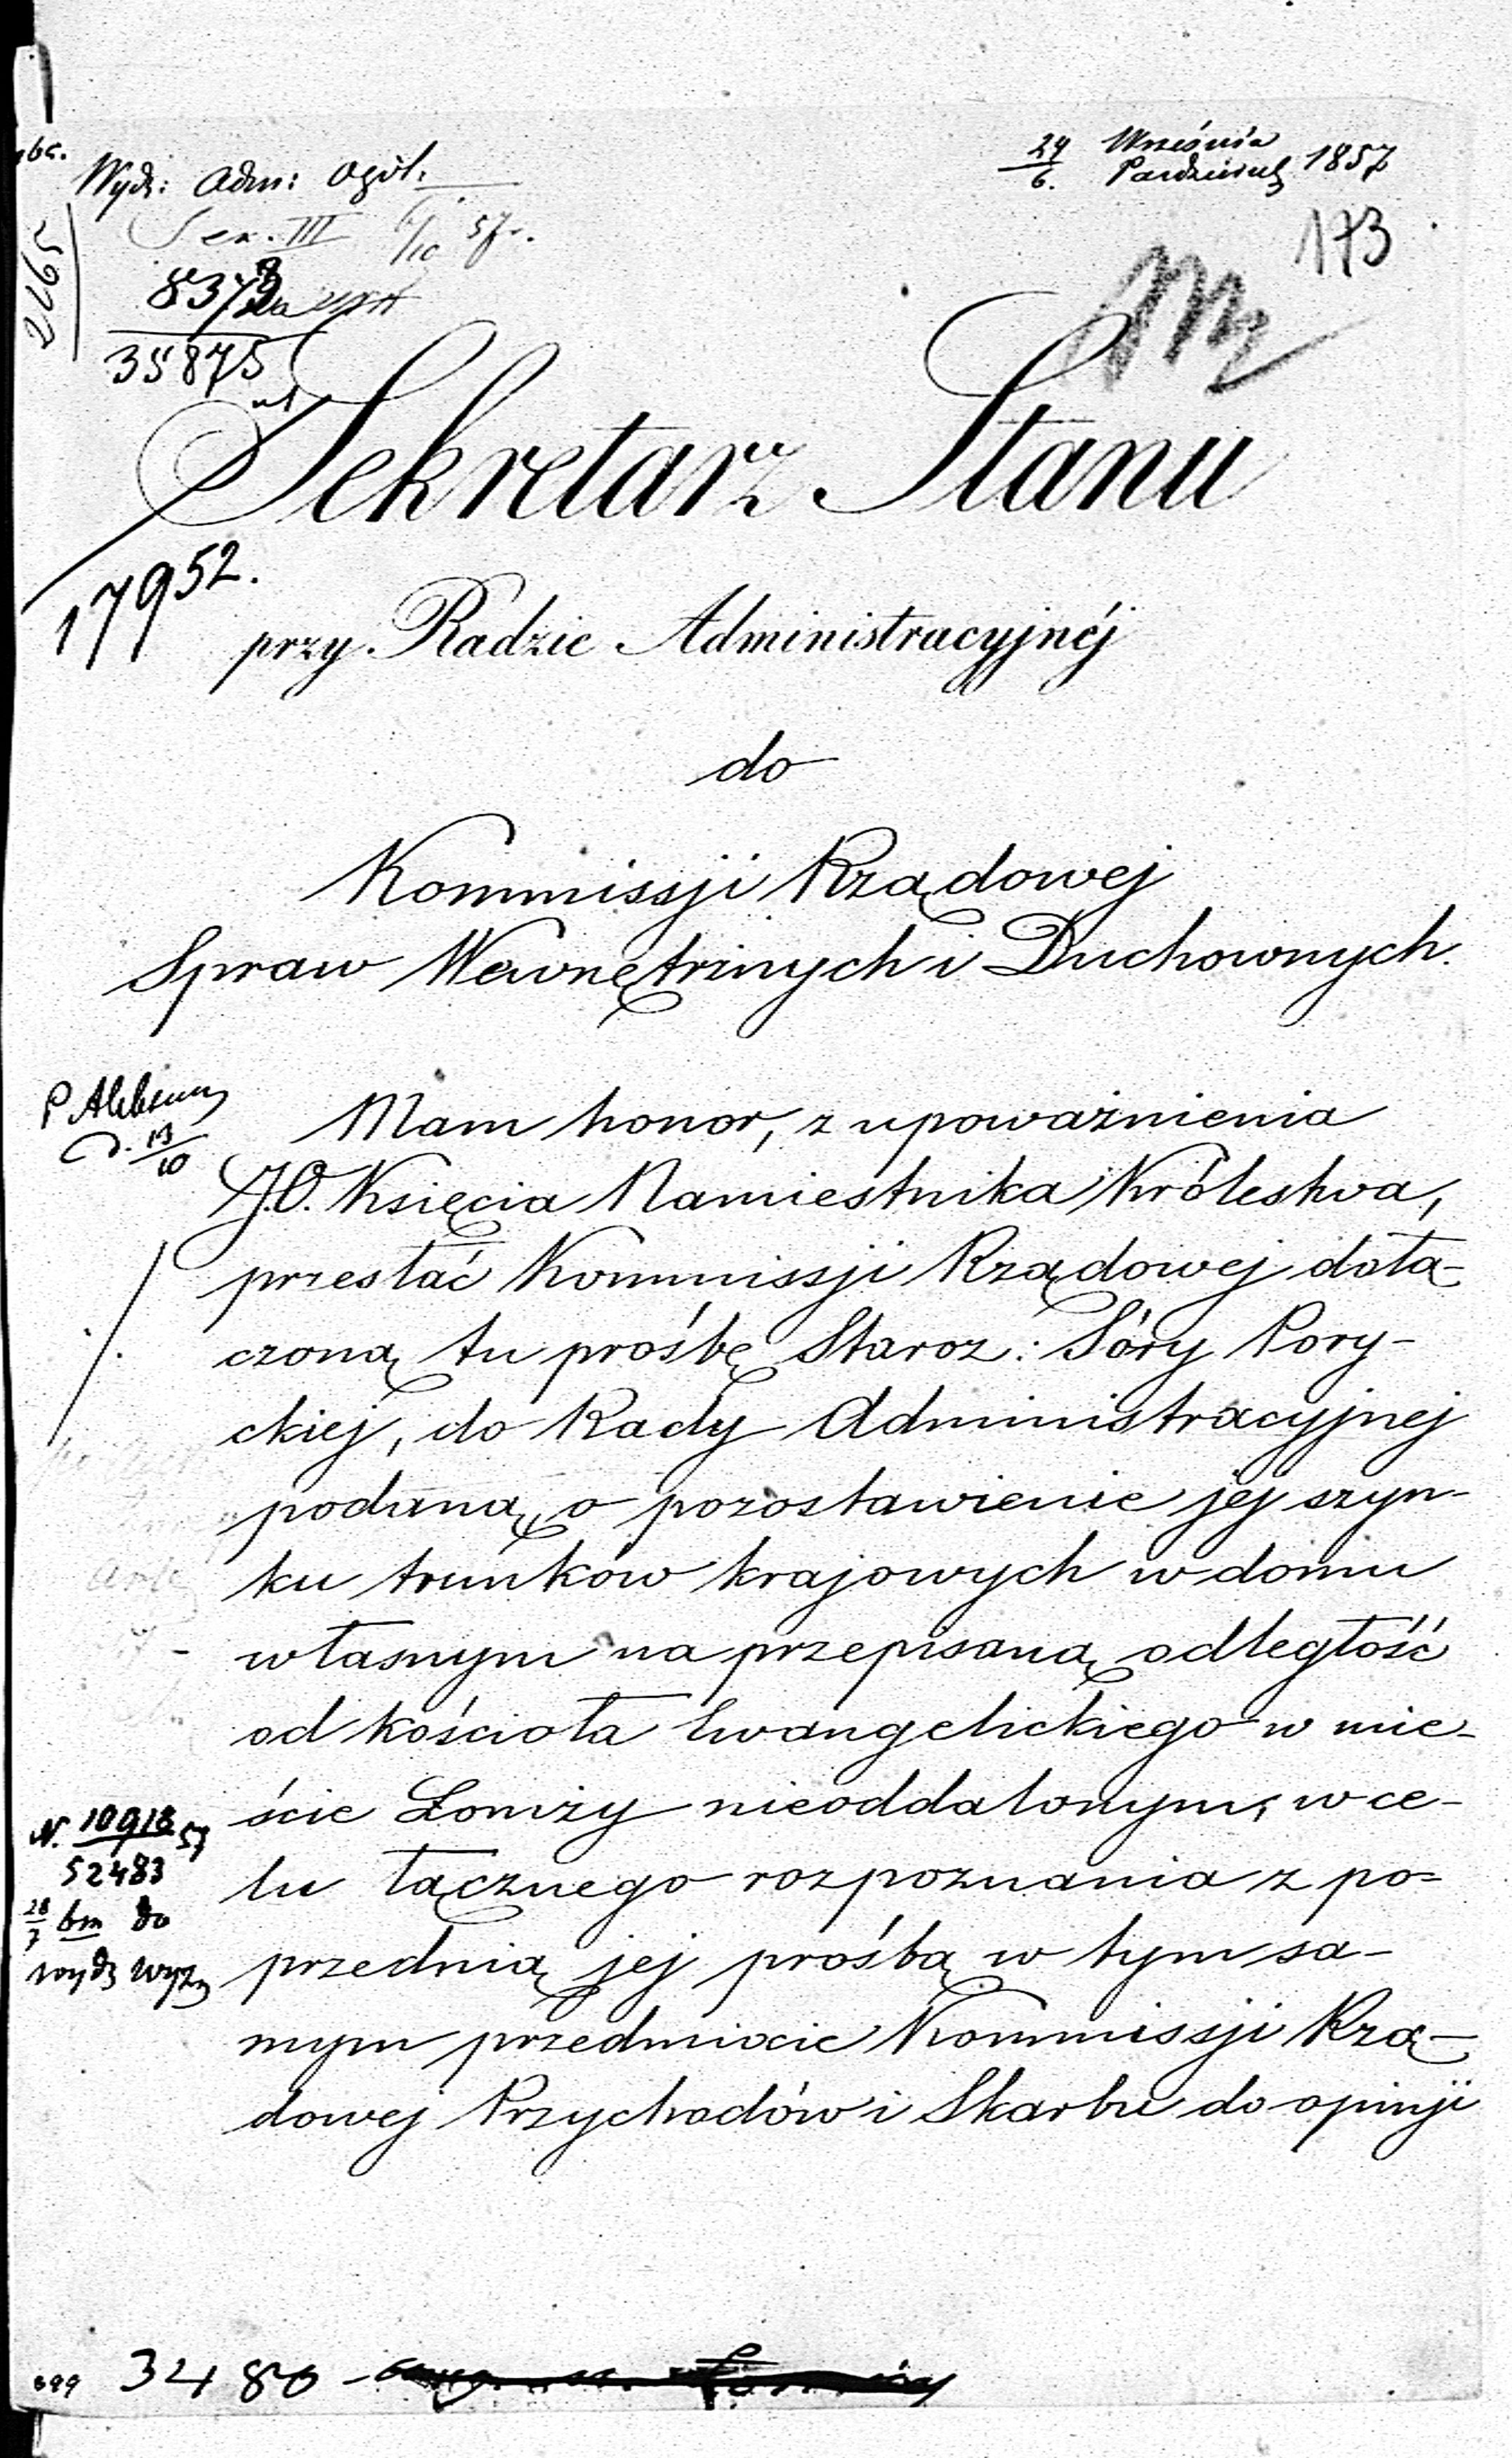 Wydz: Adm: Ogól.
24 Września
6. Październik 1857
Sek. III 6/10 57 r.
173
2265
8379
35875
Sekretarz Stanu
17952.
przy Radzie Administracyjnéj
do
Kommissji Rządowej
Spraw Wewnętrznych i Duchownych.
Mam honor, z upoważnienia
J.O. Księcia Namiestnika Królestwa,
przesłać Kommissji Rządowej dołą-
czoną tu prośbę Staroz: Sóry Pory-
ckiej, do Rady Administracyjnej
podaną, o pozostawienie jej szyn-
ku trunków krajowych w domu
własnym na przepisaną odległość
od kościoła Ewangelickiego w mie-
ście Łomży nieoddalonym, w ce-
lu łącznego rozpoznania z po-
przednią jej prośbą w tym sa-
mym przedmiocie Kommissji Rzą-
dowej Przychodów i Skarbu do opinji
N. 10918 57
52483
28/7 bm do
wydz wyzn
699 32480